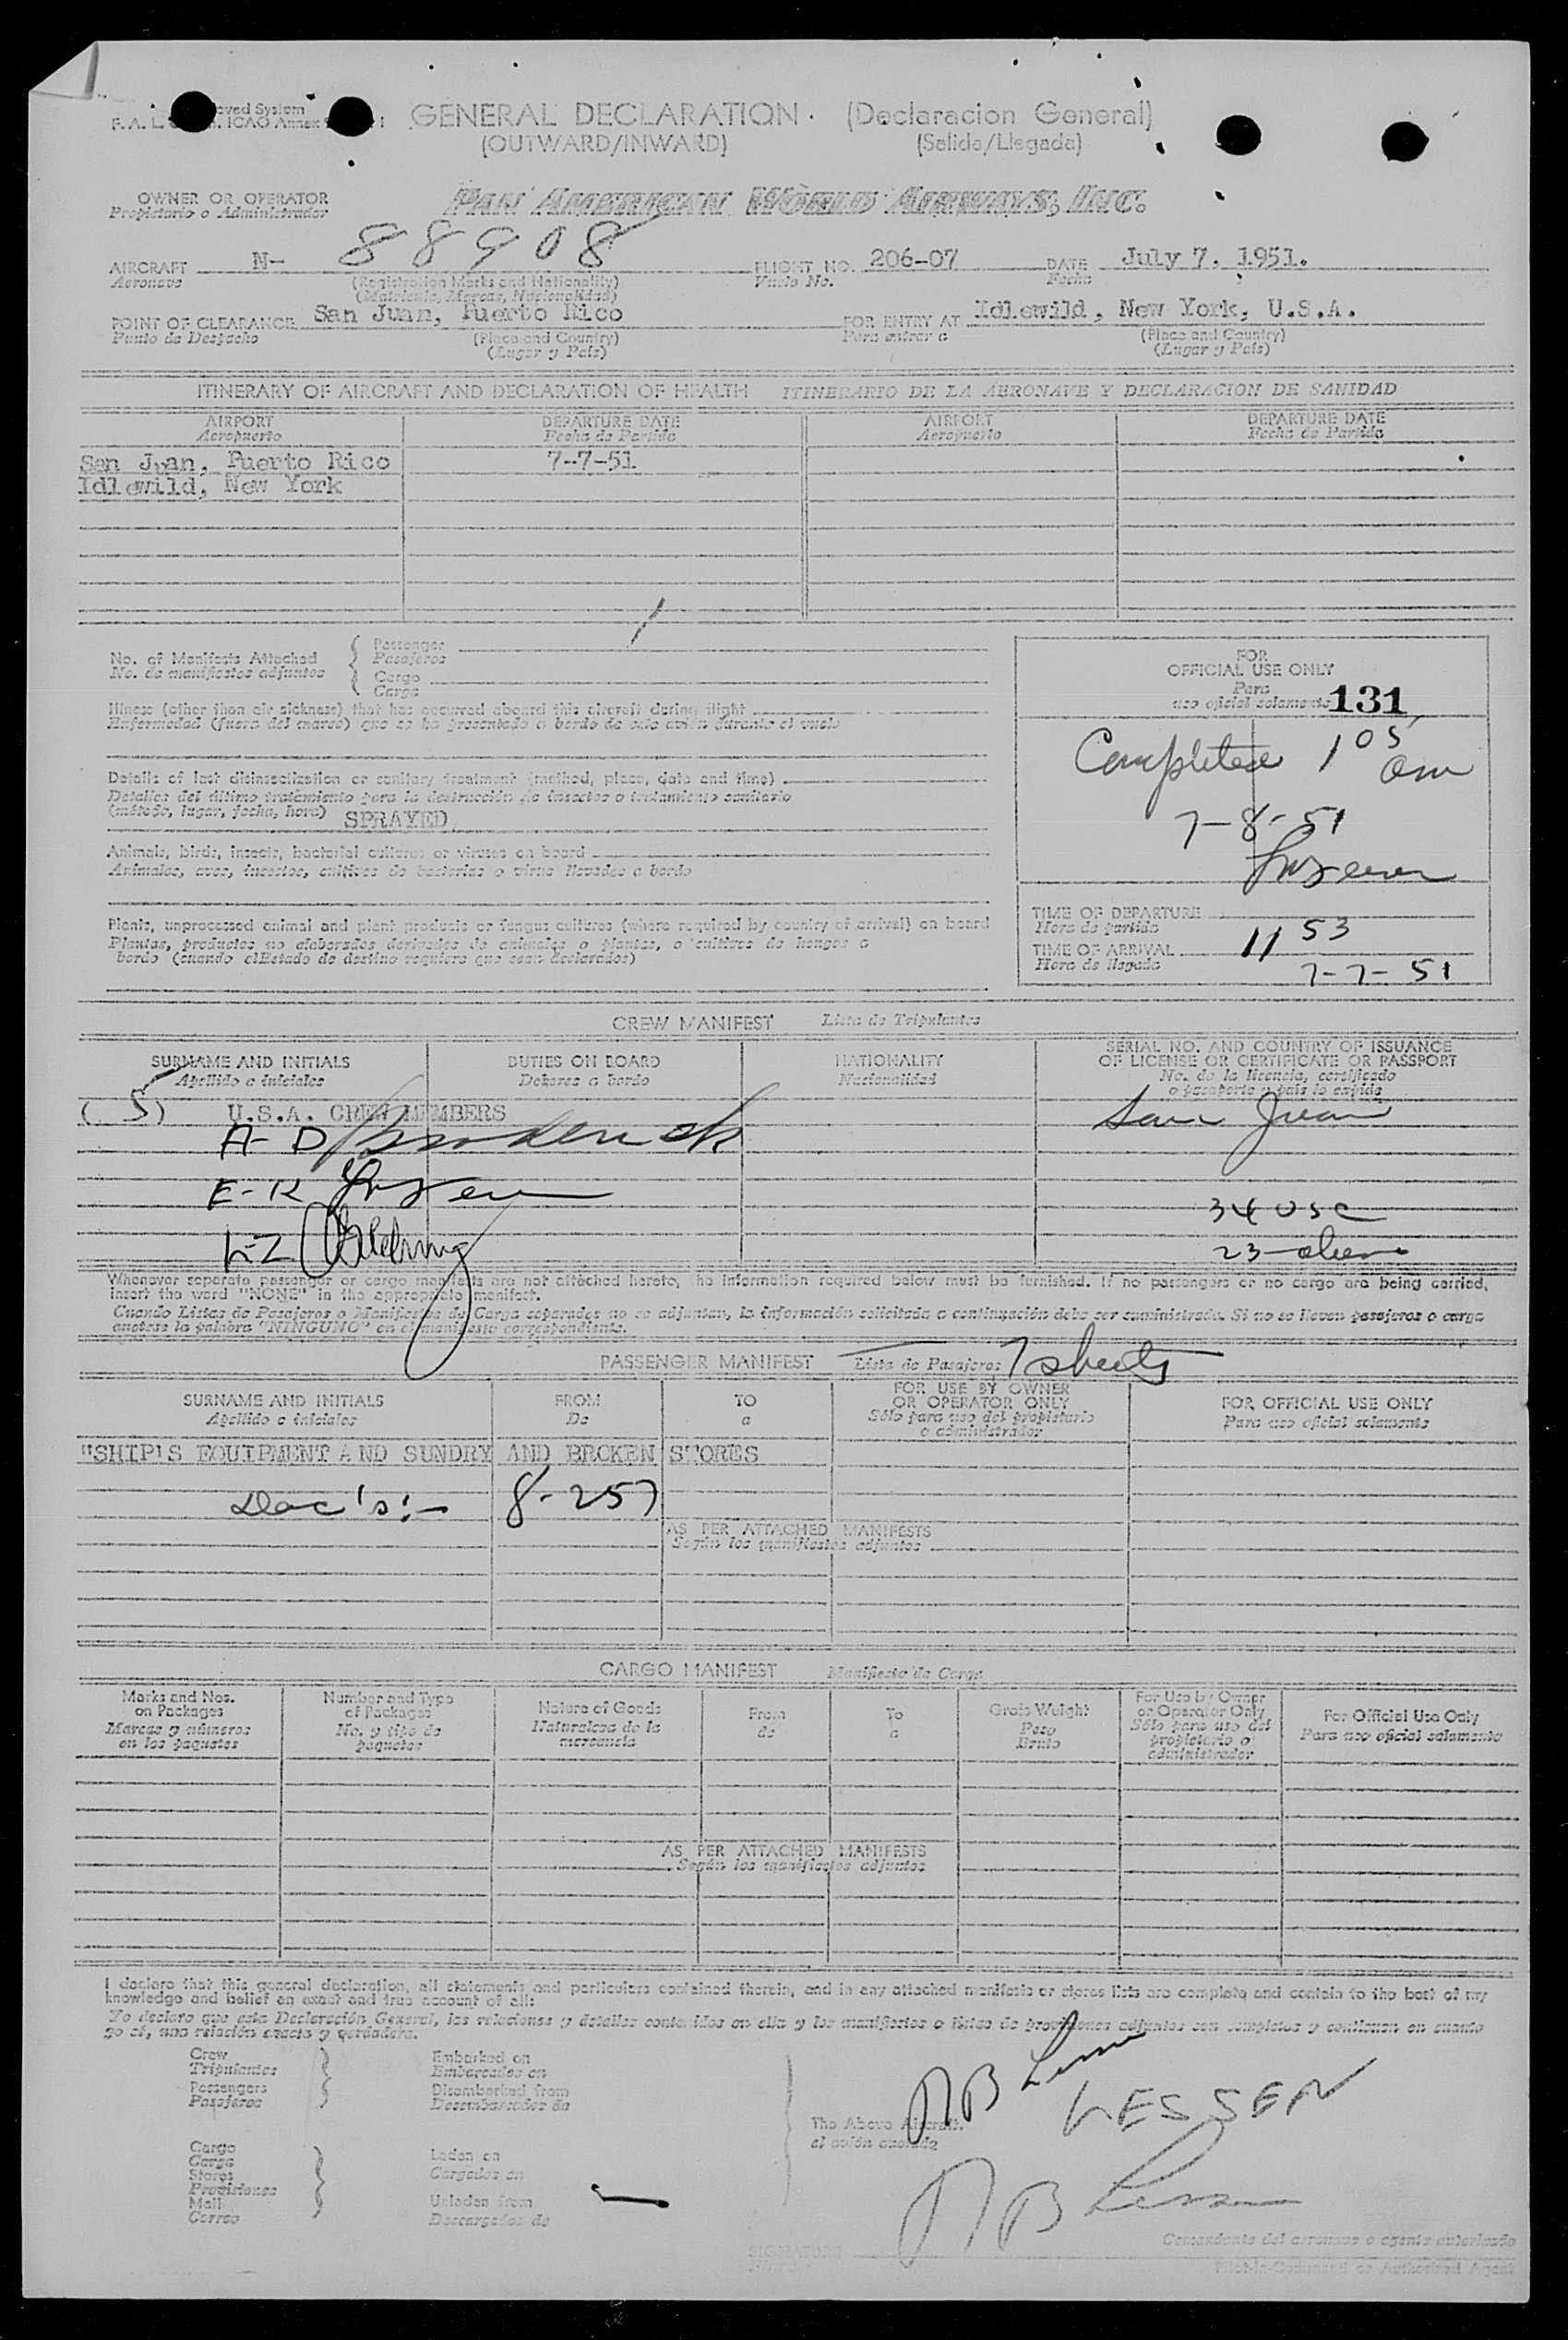 GENERAL DECLARATION. (Declaracion General)
(OUTWARD/INWARD) (Salida/Llegada)
OWNER OR OPERATOR PAN AMERICAN WORLD AIRWAYS, INC.
Propietario o Administrador
AIRCRAFT N- 88908 FLIGHT NO. 206-07 DATE July 7, 1951.
Aeronave (Registration Marks and Nationality) Vuelo No. Fecha
(Matricula, Marcas, Nacionalidad)
POINT OF CLEARANCE San Juan, Puerto Rico FOR ENTRY AT Idlewild, New York, U.S.A.
Punto de Despacho (Place and Country) Para entrar a (Place and Country)
(Lugar y País) (Lugar y País)
ITINERARY OF AIRCRAFT AND DECLARATION OF HEALTH ITINERARIO DE LA AERONAVE Y DECLARACION DE SANIDAD
AIRPORT DEPARTURE DATE AIRPORT DEPARTURE DATE
Aeropuerto Fecha de Partida Aeropuerto Fecha de Partida
San Juan, Puerto Rico 7-7-51
Idlewild, New York
No. of Manifests Attached Passenger
No. de manifiestos adjuntos Pasajeros
Cargo
Carga
Illness (other than air sickness) that has occurred aboard this aircraft during flight
Enfermedad (fuera del mareo) que se ha presentado a bordo de este avión durante el vuelo
Details of last disinsectization or sanitary treatment (method, place, date and time)
Detalles del último tratamiento para la destrucción de insectos o tratamiento sanitario
(método, lugar, fecha, hora) SPRAYED
Animals, birds, insects, bacterial cultures or viruses on board
Animales, aves, insectos, cultivos de bacterias o virus llevados a bordo
Plants, unprocessed animal and plant products or fungus cultures (where required by country of arrival) on board
Plantas, productos no elaborados derivados de animales o plantas, o cultivos de hongos a
bordo (cuando el Estado de destino requiera que sean declarados)
FOR
OFFICIAL USE ONLY
Para
uso oficial solamente 131
Completed 1 05 am
7-8-51
TIME OF DEPARTURE
Hora de partida
TIME OF ARRIVAL 11 53
Hora de llegada 7-7-51
CREW MANIFEST Lista de Tripulantes
SURNAME AND INITIALS DUTIES ON BOARD NATIONALITY SERIAL NO. AND COUNTRY OF ISSUANCE
OF LICENSE OR CERTIFICATE OR PASSPORT
Apellido e iniciales Deberes a bordo Nacionalidad No. de la licencia, certificado
o pasaporte y país lo expide
(5) U.S.A. CREW MEMBERS San Juan
A-D Broderick
E-K
34 USC
L-Z
Whenever separate passenger or cargo manifests are not attached hereto, the information required below must be furnished. If no passengers or no cargo are being carried,
insert the word "NONE" in the appropriate manifest.
Cuando Listas de Pasajeros o Manifiestos de Carga separados no se adjuntan, la información solicitada a continuación debe ser suministrada. Si no se llevan pasajeros o carga
anótese la palabra "NINGUNO" en el manifiesto correspondiente.
PASSENGER MANIFEST Lista de Pasajeros 7 sheets
SURNAME AND INITIALS FROM TO FOR USE BY OWNER
OR OPERATOR ONLY FOR OFFICIAL USE ONLY
Apellido e iniciales De a Sólo para uso del propietario
o administrador Para uso oficial solamente
"SHIP'S EQUIPMENT AND SUNDRY AND BROKEN STORES
Doc's:- 8-257
AS PER ATTACHED MANIFESTS
Según los manifiestos adjuntos
CARGO MANIFEST Manifiesto de Carga
Marks and Nos.
on Packages
Marcas y números
en los paquetes
Number and Type
of Packages
No. y tipo de
paquetes
Nature of Goods
Naturaleza de la
mercancía
From
de
To
a
Gross Weight
Peso
Bruto
For Use by Owner
or Operator Only
Sólo para uso del
propietario o
administrador
For Official Use Only
Para uso oficial solamente
AS PER ATTACHED MANIFESTS
Según los manifiestos adjuntos
I declare that this general declaration, all statements and particulars contained therein, and in any attached manifests or stores lists are complete and contain to the best of my
knowledge and belief an exact and true account of all:
Yo declaro que esta Declaración General, las relaciones y detalles contenidos en ella y los manifiestos o listas de provisiones adjuntos son completos y contienen en cuanto
yo sé, una relación exacta y verdadera.
Crew Embarked on
Tripulantes Embarcados en
Passengers Disembarked from
Pasajeros Desembarcados de
The Above Aircraft.
el avión anotado
LESSEN
Cargo
Carga Laden on
Stores Cargados en
Provisiones
Mail Unladen from
Correo Descargados de
Comandante del aeronave o agente autorizado
Pilot-in-Command or Authorized Agent